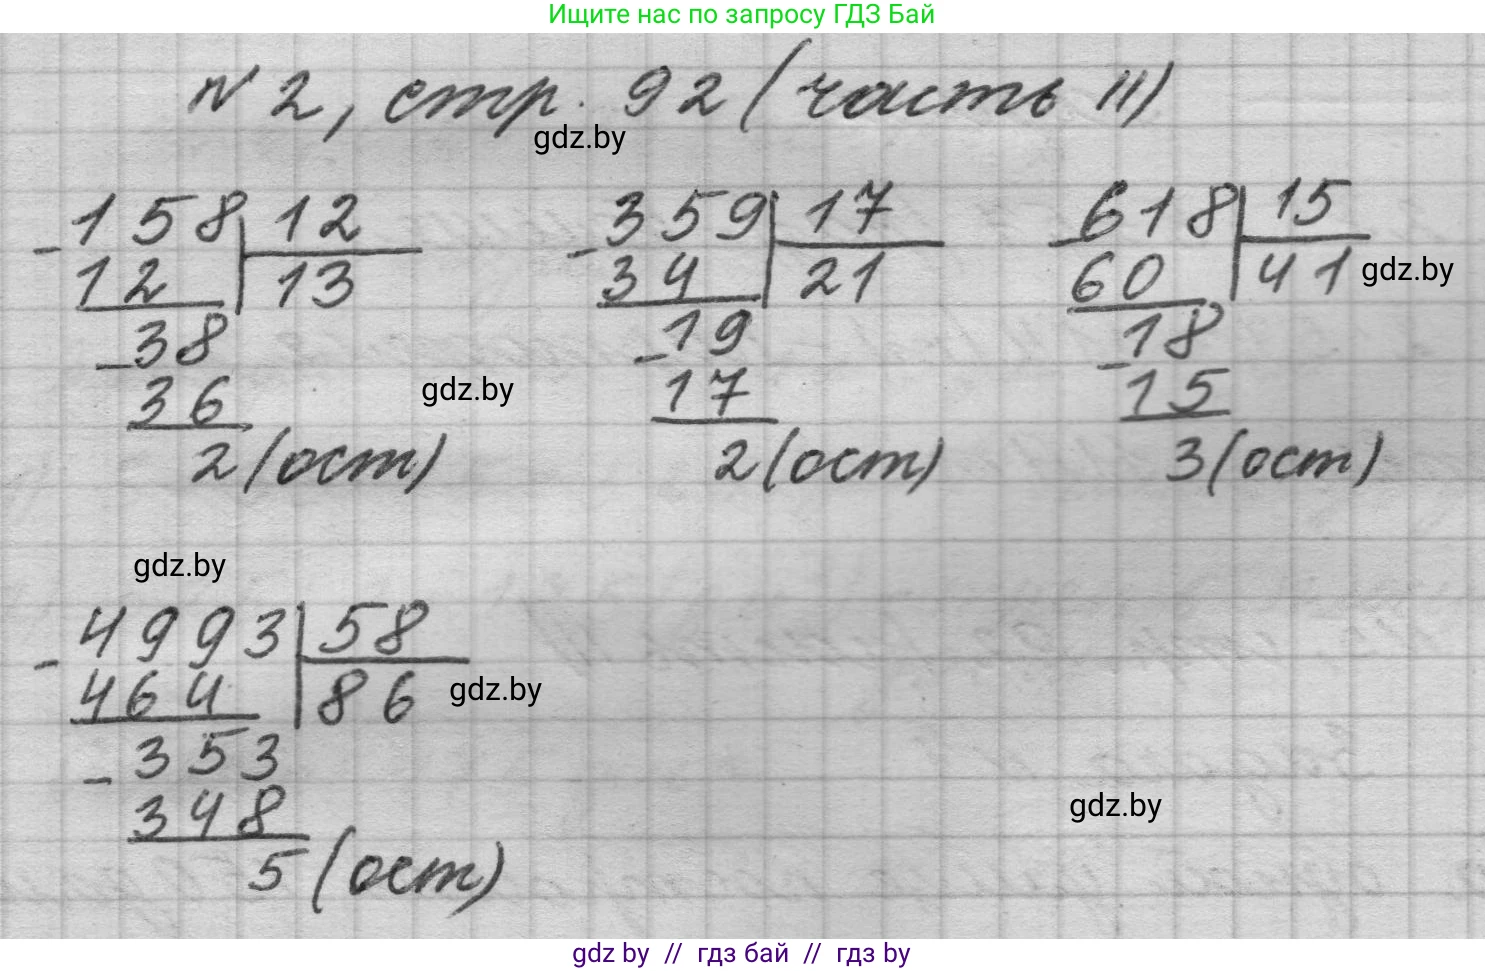 Ищите нас по запросу ГДЗ Бай
№ 2, стр. 92 (часть II)
gdz.by
- 158 | 12
12 | 13
- 38
36
2 (ост)
- 359 | 17
34 | 21
- 19
17
2 (ост)
- 618 | 15
60 | 41
- 18
15
3 (ост)
gdz.by
gdz.by
gdz.by
- 4993 | 58
464 | 86
- 353
348
5 (ост)
gdz.by
gdz.by
gdz by // гдз бай // гдз by